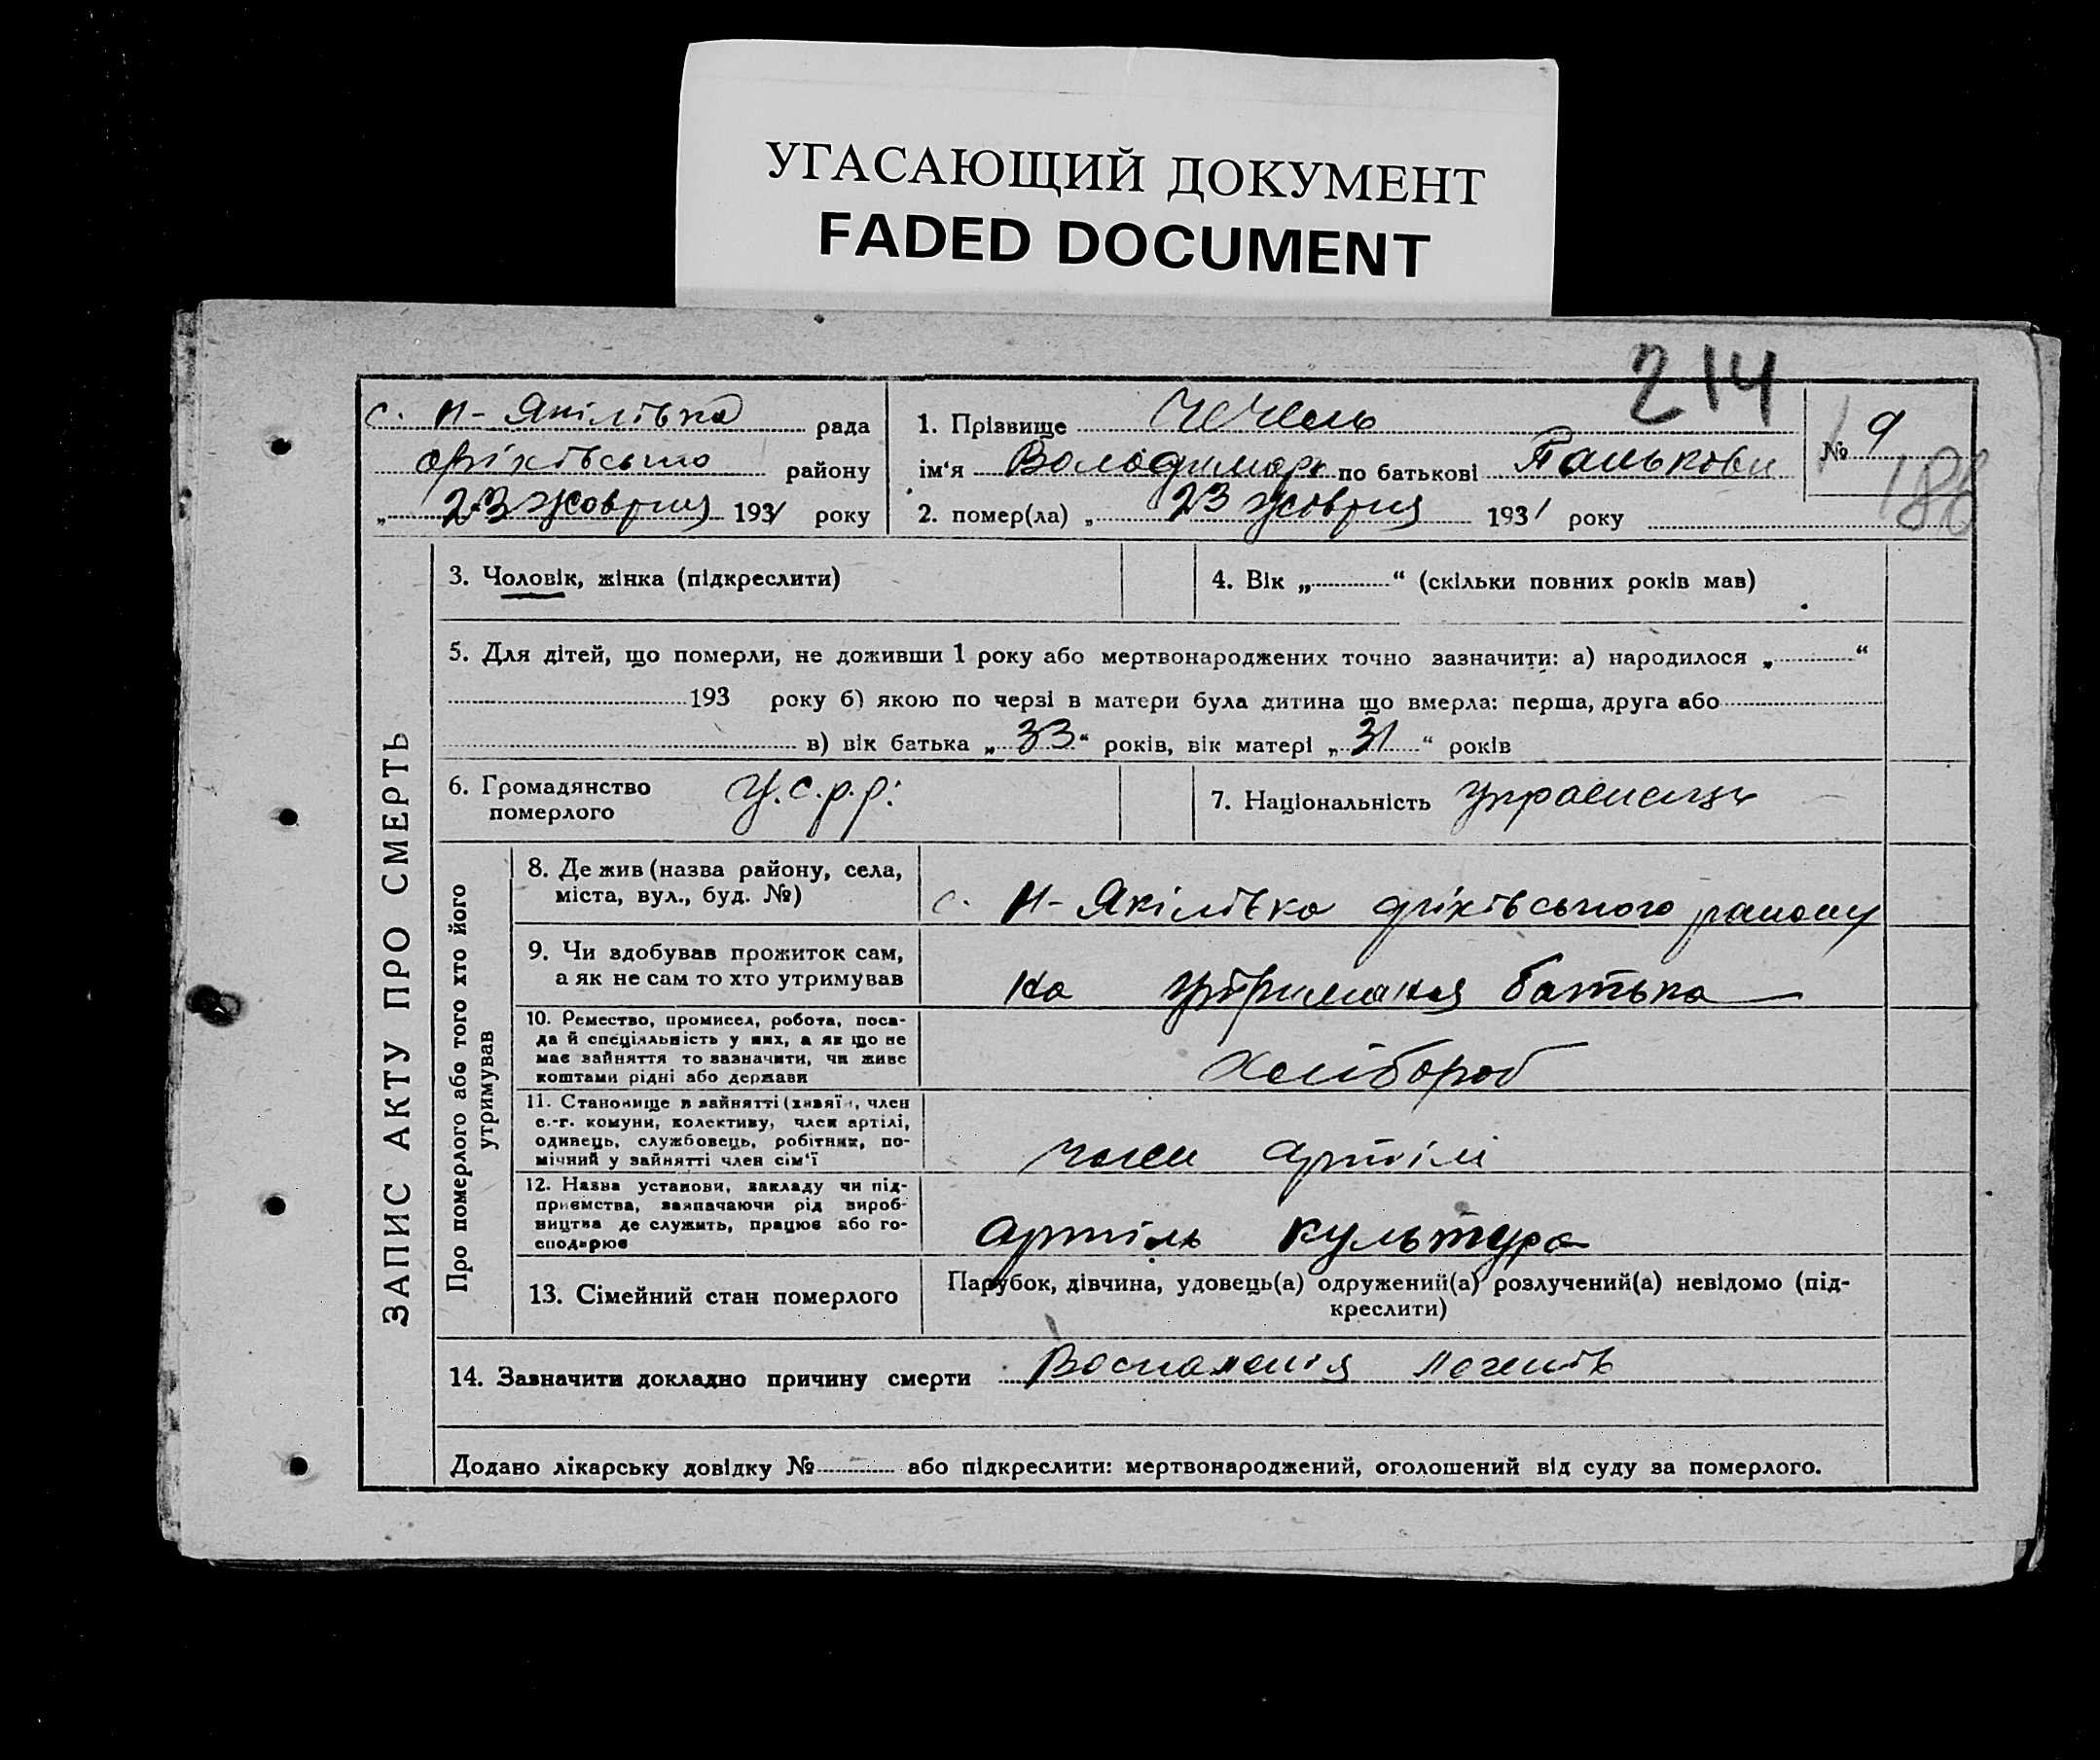 УГАСАЮЩИЙ ДОКУМЕНТ
FADED DOCUMENT
214
с. Н-Якілівка рада
оріхівсько району
„ 23 жовтня 1931 року
1. Прізвище Чечель
ім‘я Володимир по батькові Панькови
2. помер(ла) „ 23 жовтня 1931 року
№ 9
186
ЗАПИС АКТУ ПРО СМЕРТЬ
3. Чоловік, жінка (підкреслити)
4. Вік „ “ (скільки повних років мав)
5. Для дітей, що померли, не доживши 1 року або мертвонароджених точно зазначити: а) народилося „ “
193 року б) якою по черзі в матери була дитина що вмерла: перша, друга або
в) вік батька „ 33 “ років, вік матері „ 31 “ років
6. Громадянство
померлого
У.с.р.р.
7. Національність Украинець
Про померлого або того хто його
утримував
8. Де жив (назва району, села,
міста, вул., буд. №)
с. Н-Якілівка оріхівського району
9. Чи здобував прожиток сам,
а як не сам то хто утримував
на утримання батька
10. Ремество, промисел, робота, поса-
да й спеціяльність у них, а як що не
має зайняття то зазначити, чи живе
коштами рідні або держави
Хлибороб
11. Становище в зайнятті (хазяїн, член
с.-г. комуни, колективу, член артілі,
одинець, службовець, робітник, по-
мічний у зайнятті член сім‘ї
член артілі
12. Назва установи, закладу чи під-
приємства, зазначаючи рід вироб-
ництва де служить, працює або го-
сподарює
артіль культура
13. Сімейний стан померлого
Парубок, дівчина, удовець(а) одружений(а) розлучений(а) невідомо (під-
креслити)
14. Зазначити докладно причину смерти Воспаления легенів
Додано лікарську довідку № або підкреслити: мертвонароджений, оголошений від суду за померлого.